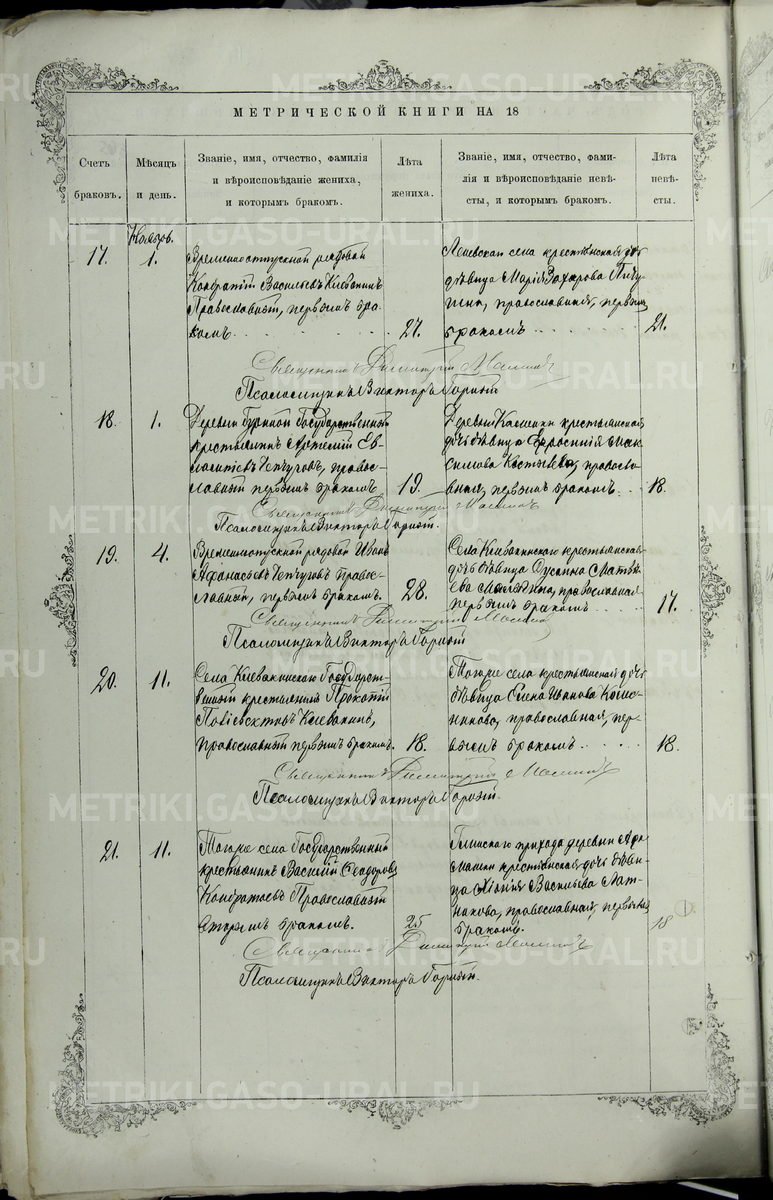 МЕТРИЧЕСКОЙ КНИГИ НА 18
Счетъ
браковъ.
Мѣсяцъ
и день.
Званіе, имя, отчество, фамилія
и вѣроисповѣданіе жениха,
и которымъ бракомъ.
Лѣта
жениха.
Званіе, имя, отчество, фами-
лія и вѣроисповѣданіе невѣ-
сты, и которымъ бракомъ.
Лѣта
невѣ-
сты.
Ноябрь.
17. 1.
Временноотпускной рядовой
Кондратій Васильевъ Клевакинъ
Православный, первымъ бра-
комъ. 27.
села крестьянская дочь
дѣвица Марія Захарова Пичу-
гина, православная, первымъ
бракомъ 21.
Священникъ Димитрій
Псаломщикъ Викторъ
18. 1.
Деревни Государственный
крестьянинъ Артемій Ев-
Чепчуговъ, право-
славный первымъ бракомъ 19.
Деревни крестьянская
дочь дѣвица Евфросинія Мак-
симова право-
вная, первымъ бракомъ. 18.
Священникъ Димитрій
Псаломщикъ Викторъ
19. 4.
Временноотпускной рядовой Иванъ
Афанасьевъ Чепчуговъ право-
славный, первымъ бракомъ. 28.
Села Клевакинскаго крестьянская
дочь дѣвица Матвѣ-
ева православная
первымъ бракомъ 17.
Священникъ Димитрій
Псаломщикъ Викторъ
20. 11.
Села Клевакинскаго Государст-
венный крестьянинъ Прокопій
Клевакинъ,
православный первымъ бракомъ. 18.
Тогоже села крестьянская дочь
дѣвица Елена Иванова Колес-
никова, православная, пер-
вымъ бракомъ 18.
Священникъ Димитрій
Псаломщикъ Викторъ
21. 11.
Тогоже села Государственный
крестьянинъ Василій Ѳеодоровъ
Кондратьевъ Православный
вторымъ бракомъ. 25
Глинскаго прихода деревни
крестьянская дочь дѣви-
ца Васильева Лат-
никова, православная, первымъ
бракомъ. 18
Священникъ Димитрій
Псаломщикъ Викторъ
METRIKI.GASO-URAL.RU